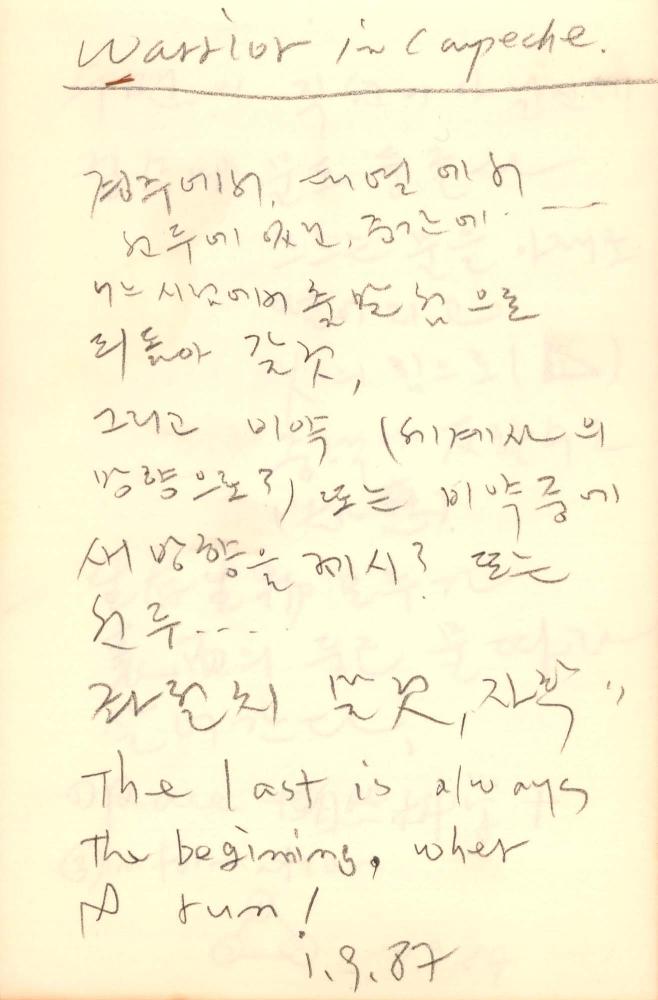 Warrior in Campeche.
경주에서, 대열에서
선두에 있건, 중간에
어느 시점에서 출발점으로
되돌아 갈것,
그리고 비약 (세계사의
방향으로?) 또는 비약중에
새 방향을 제시? 또는
선두...
좌절치 말것, 자학"
The last is always
the begining, when
run!
1.9.87